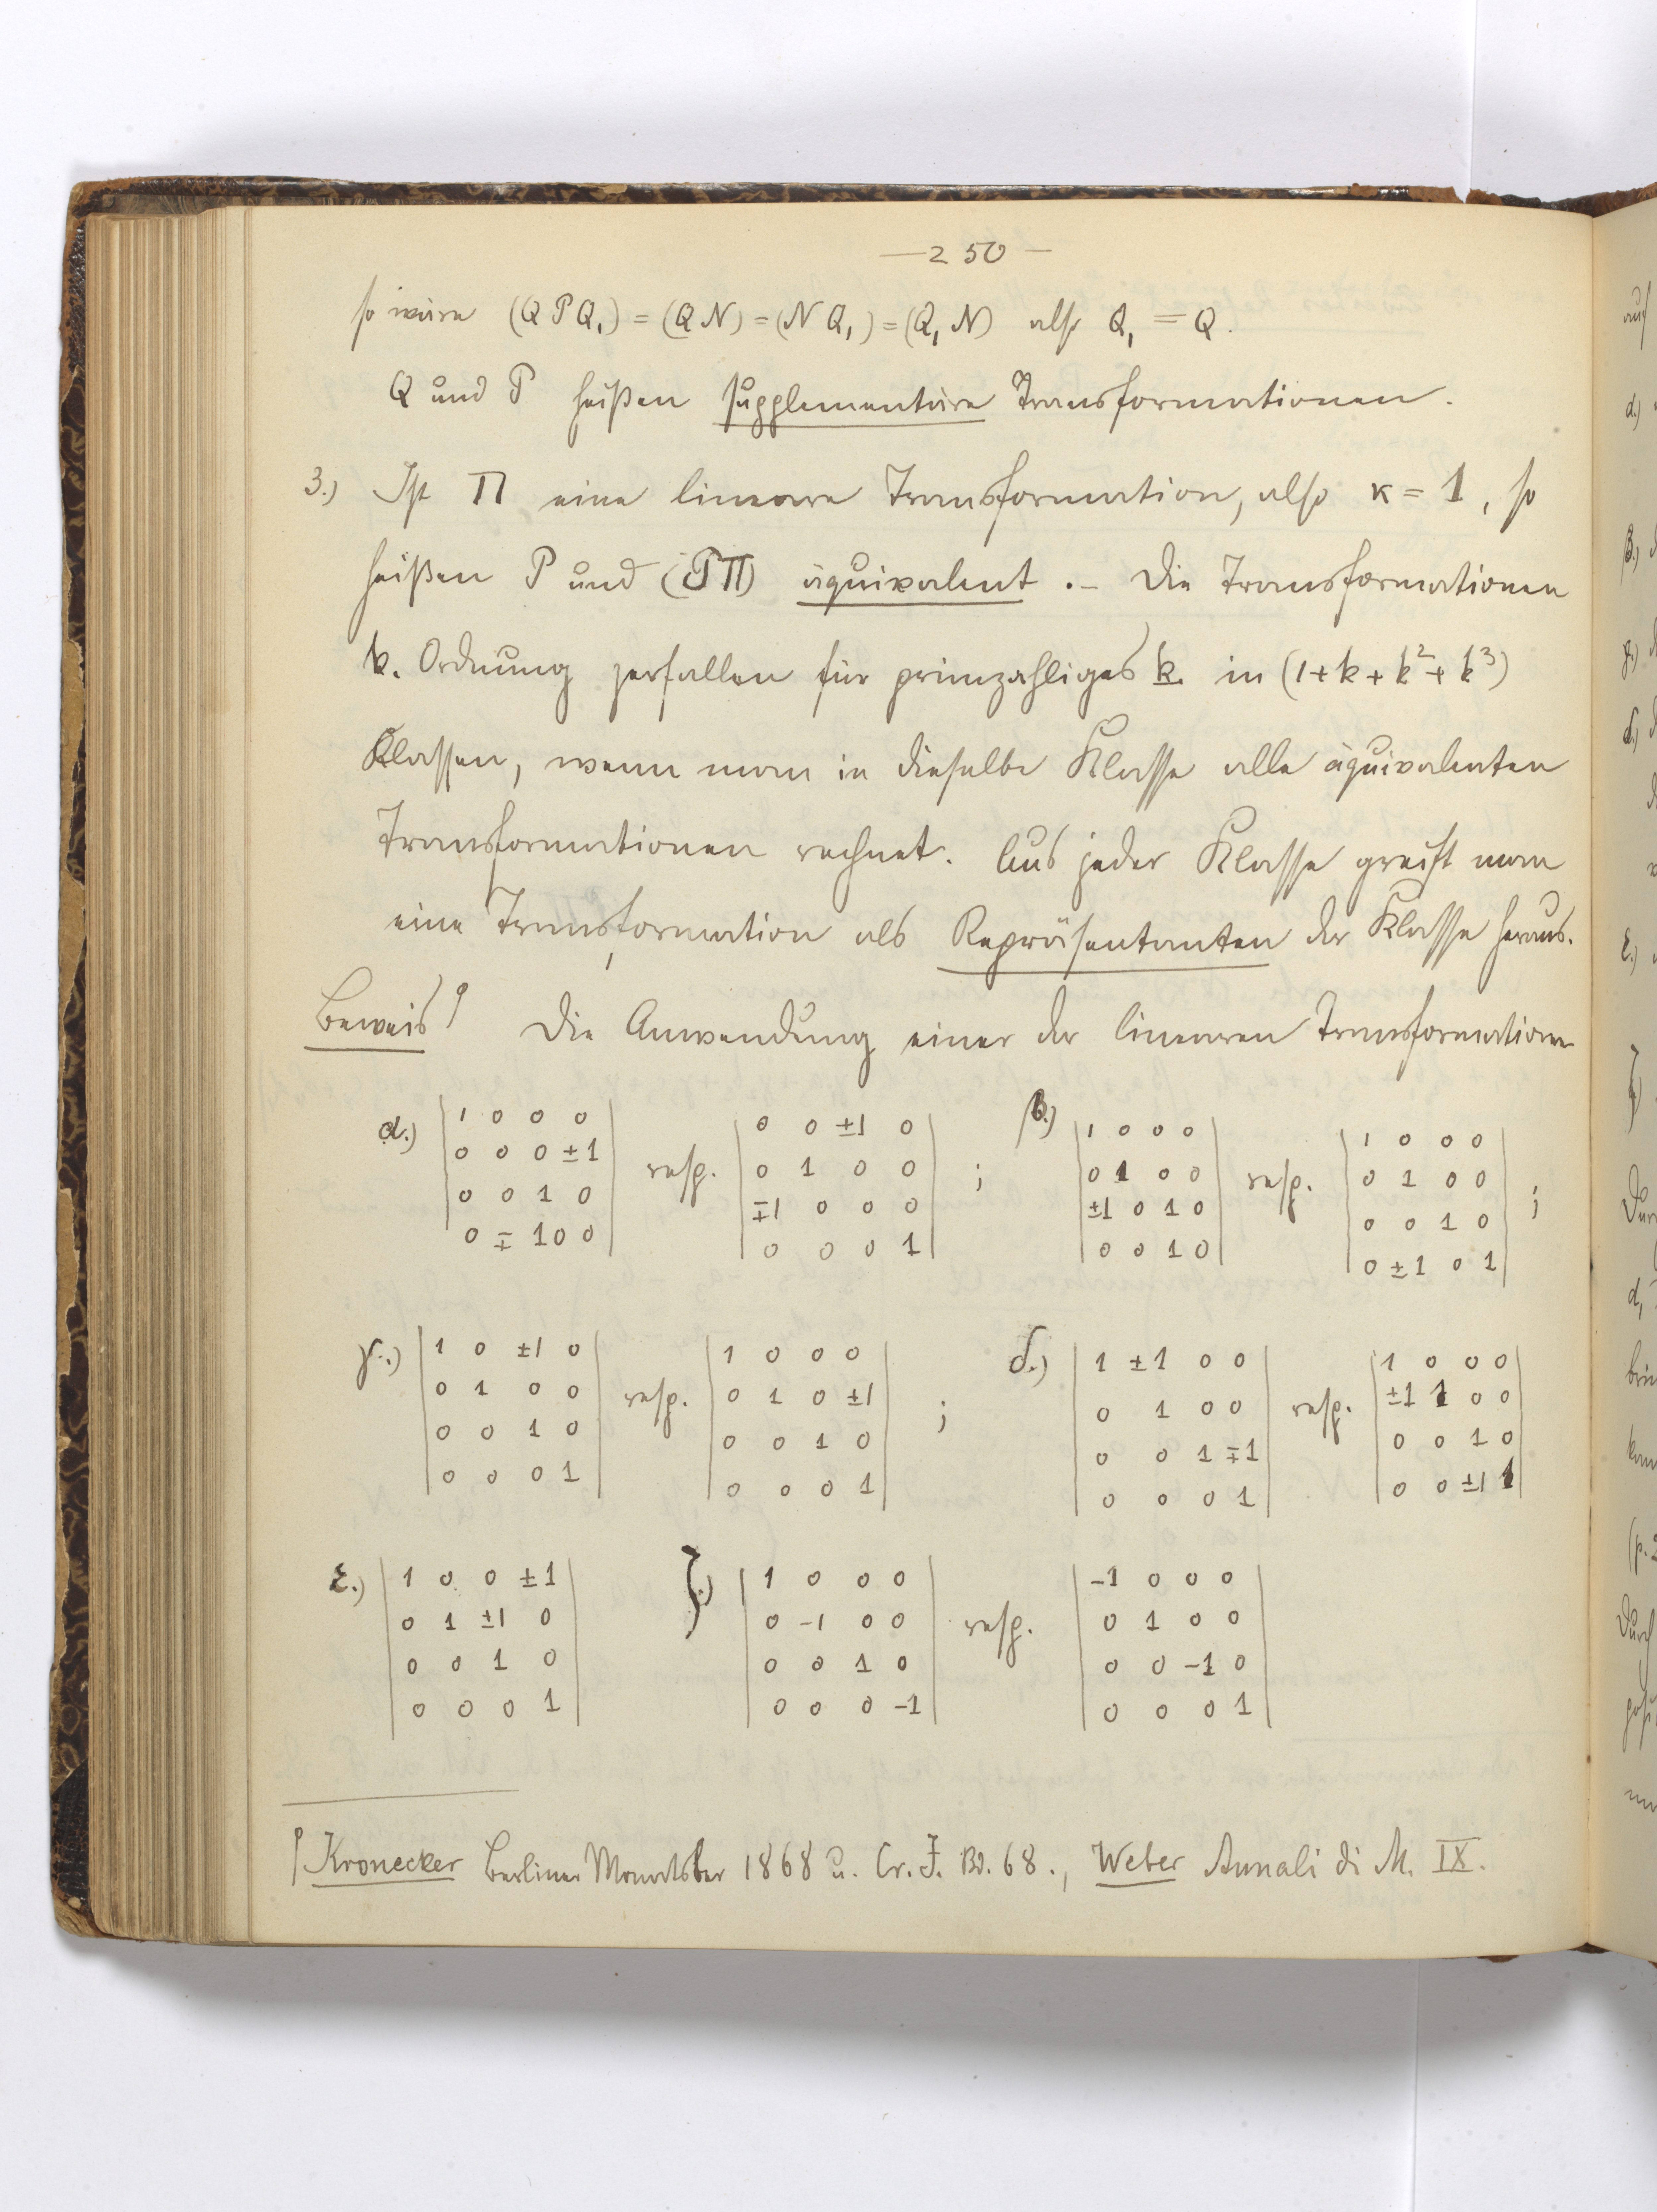 — 250 —
so wäre (QPQ₁) = (QN) = (NQ₁) = (Q₁N) also Q₁ = Q.
Q und P heißen supplementäre Transformationen.
3.) Ist Π eine lineare Transformation, also κ = 1, so
heißen P und (PΠ) äquivalent. – Die Transformationen
k. Ordnung zerfallen für primzahliges k in (1+k+k²+k³)
Klassen, wenn man in dieselbe Klasse alle äquivalenten
Transformationen rechnet. Aus jeder Klasse greift man
eine Transformation als Repräsentanten der Klasse heraus.
Beweis) Die Anwendung einer der linearen Transformationen
α.) |1 0 0 0| resp. |0 0 ±1 0| ; β.) |1 0 0 0| resp. |1 0 0 0| ;
|0 0 0 ±1| |0 1 0 0| |0 1 0 0| |0 1 0 0|
|0 0 1 0| |∓1 0 0 0| |±1 0 1 0| |0 0 1 0|
|0 ∓1 0 0| |0 0 0 1| |0 0 1 0| |0 ±1 0 1|
γ.) |1 0 ±1 0| resp. |1 0 0 0| ; δ.) |1 ±1 0 0| resp. |1 0 0 0|
|0 1 0 0| |0 1 0 ±1| |0 1 0 0| |±1 1 0 0|
|0 0 1 0| |0 0 1 0| |0 0 1 ∓1| |0 0 1 0|
|0 0 0 1| |0 0 0 1| |0 0 0 1| |0 0 ±1 1|
ε.) |1 0 0 ±1| ζ.) |1 0 0 0| resp. |-1 0 0 0|
|0 1 ±1 0| |0 -1 0 0| |0 1 0 0|
|0 0 1 0| |0 0 1 0| |0 0 -1 0|
|0 0 0 1| |0 0 0 -1| |0 0 0 1|
) Kronecker Berliner Monatsber 1868 u. Cr. J. Bd. 68., Weber Annali di M. IX.